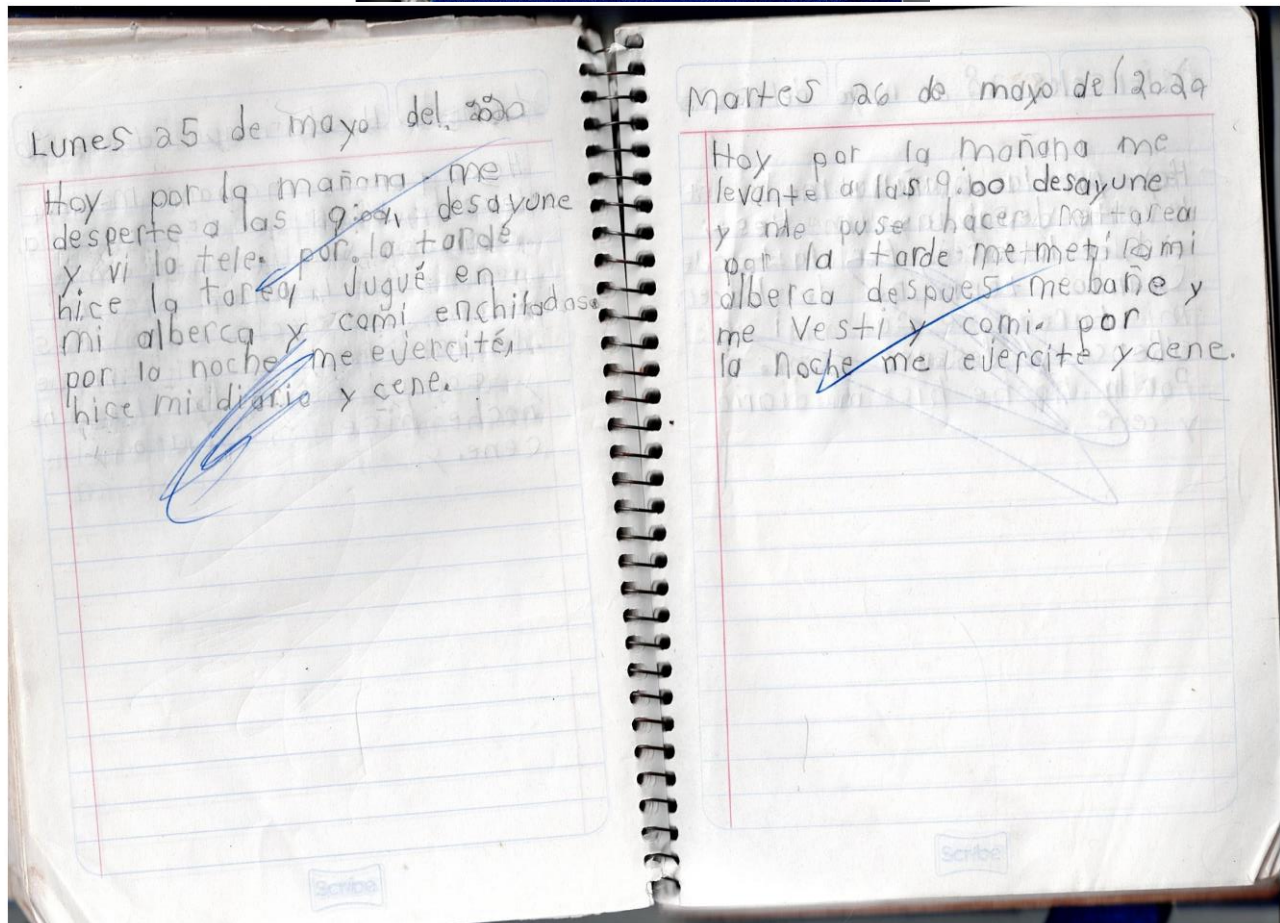 Lunes 25 de mayo del 2020
Hoy por la mañana me
desperte a las desayune
y vi la tele. por la tarde
hice la tarea, Jugué en
mi alberca y comí enchiladas.
por la noche me ejercité,
hice mi diario y cene.
Scribe
Martes 26 de mayo del 2020
Hoy por la mañana me
levante a las 9:00 desayune
y me puse hacer mi tarea
por la tarde me metí a mi
alberca despues me bañe y
me vesti y comi. por
la noche me ejercite y cene.
Scribe